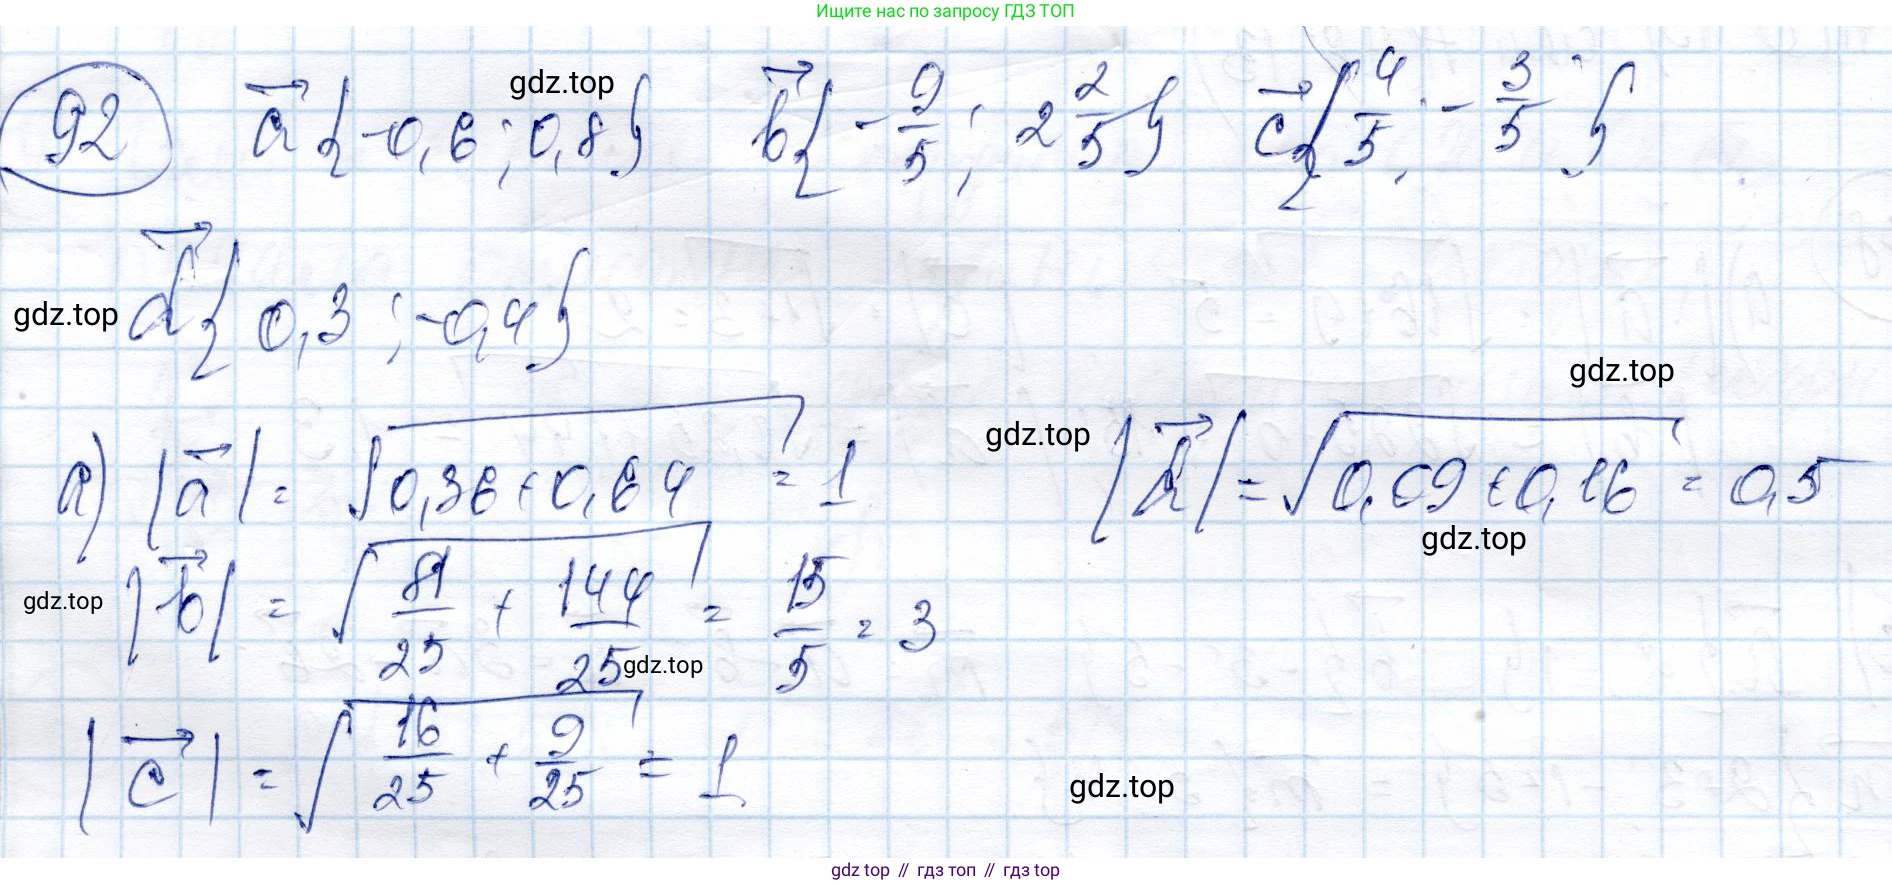 Ищите нас по запросу ГДЗ ТОП
92 a⃗ {-0,6 ; 0,8} gdz.top b⃗ {-9/5 ; 2 2/5} c⃗ {4/5 ; -3/5}
gdz.top d⃗ {0,3 ; -0,4}
gdz.top
а) |a⃗| = √(0,36 + 0,64) = 1 gdz.top |d⃗| = √(0,09 + 0,16) = 0,5
gdz.top
gdz.top |b⃗| = √(81/25 + 144/25) = 15/5 = 3
gdz.top
|c⃗| = √(16/25 + 9/25) = 1
gdz.top
gdz top // гдз топ // гдз top